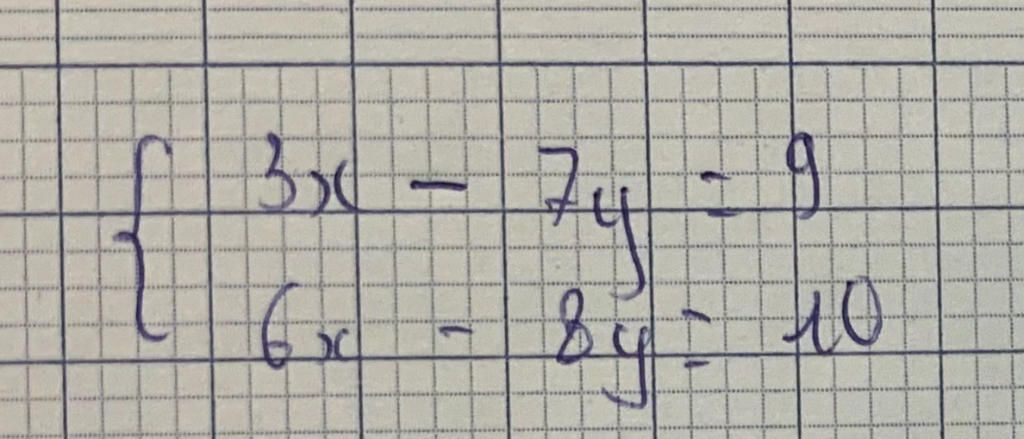 3x - 7y = 9
6x - 8y = 10